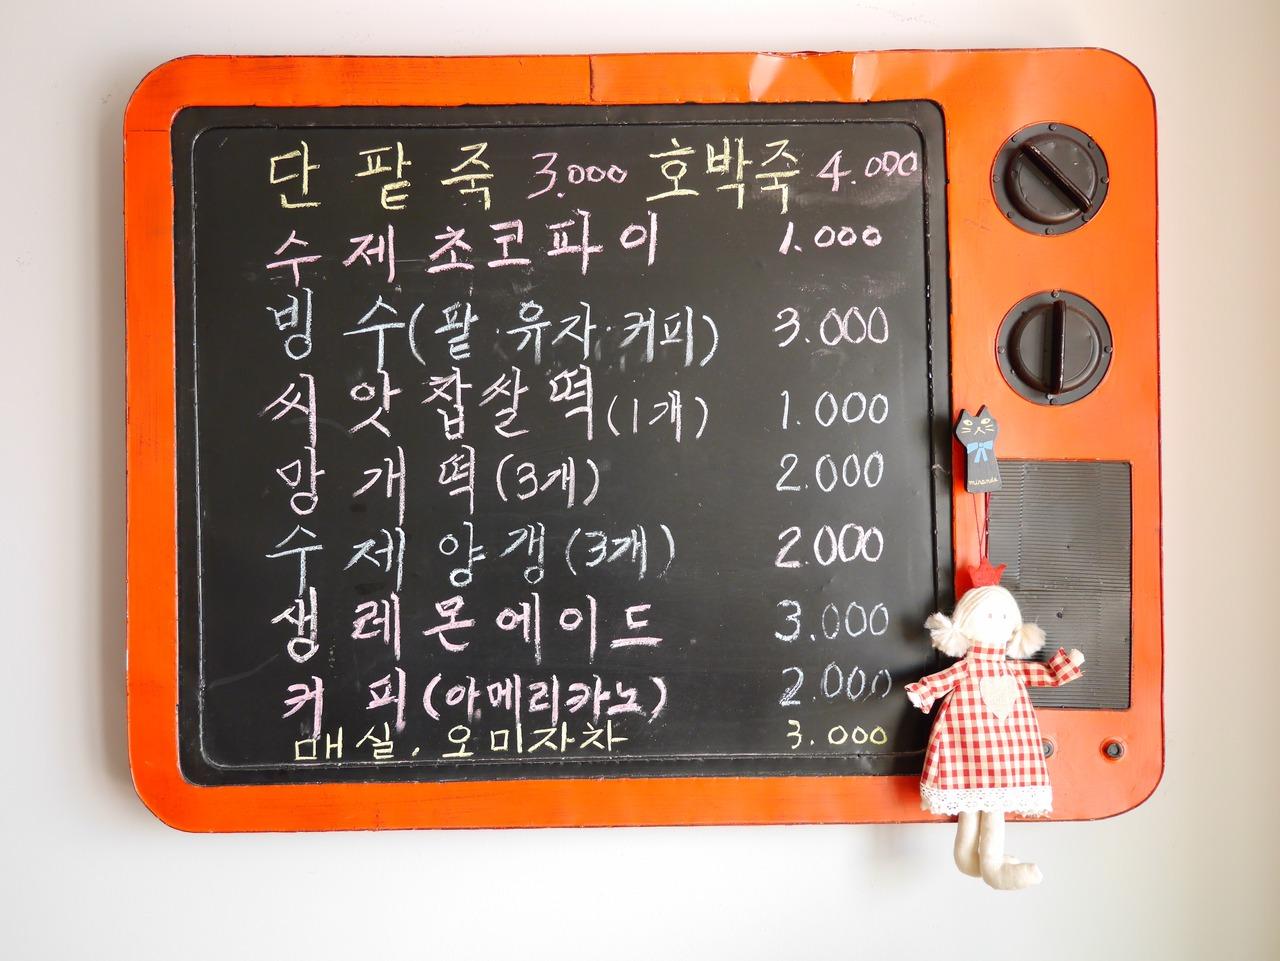 단팥죽 3.000 호박죽 4.000
수제초코파이 1.000
빙수(팥·유자·커피) 3.000
씨앗찹쌀떡(1개) 1.000
망개떡(3개) 2.000
수제양갱(3개) 2.000
생레몬에이드 3.000
커피(아메리카노) 2.000
매실. 오미자차 3.000
miranda